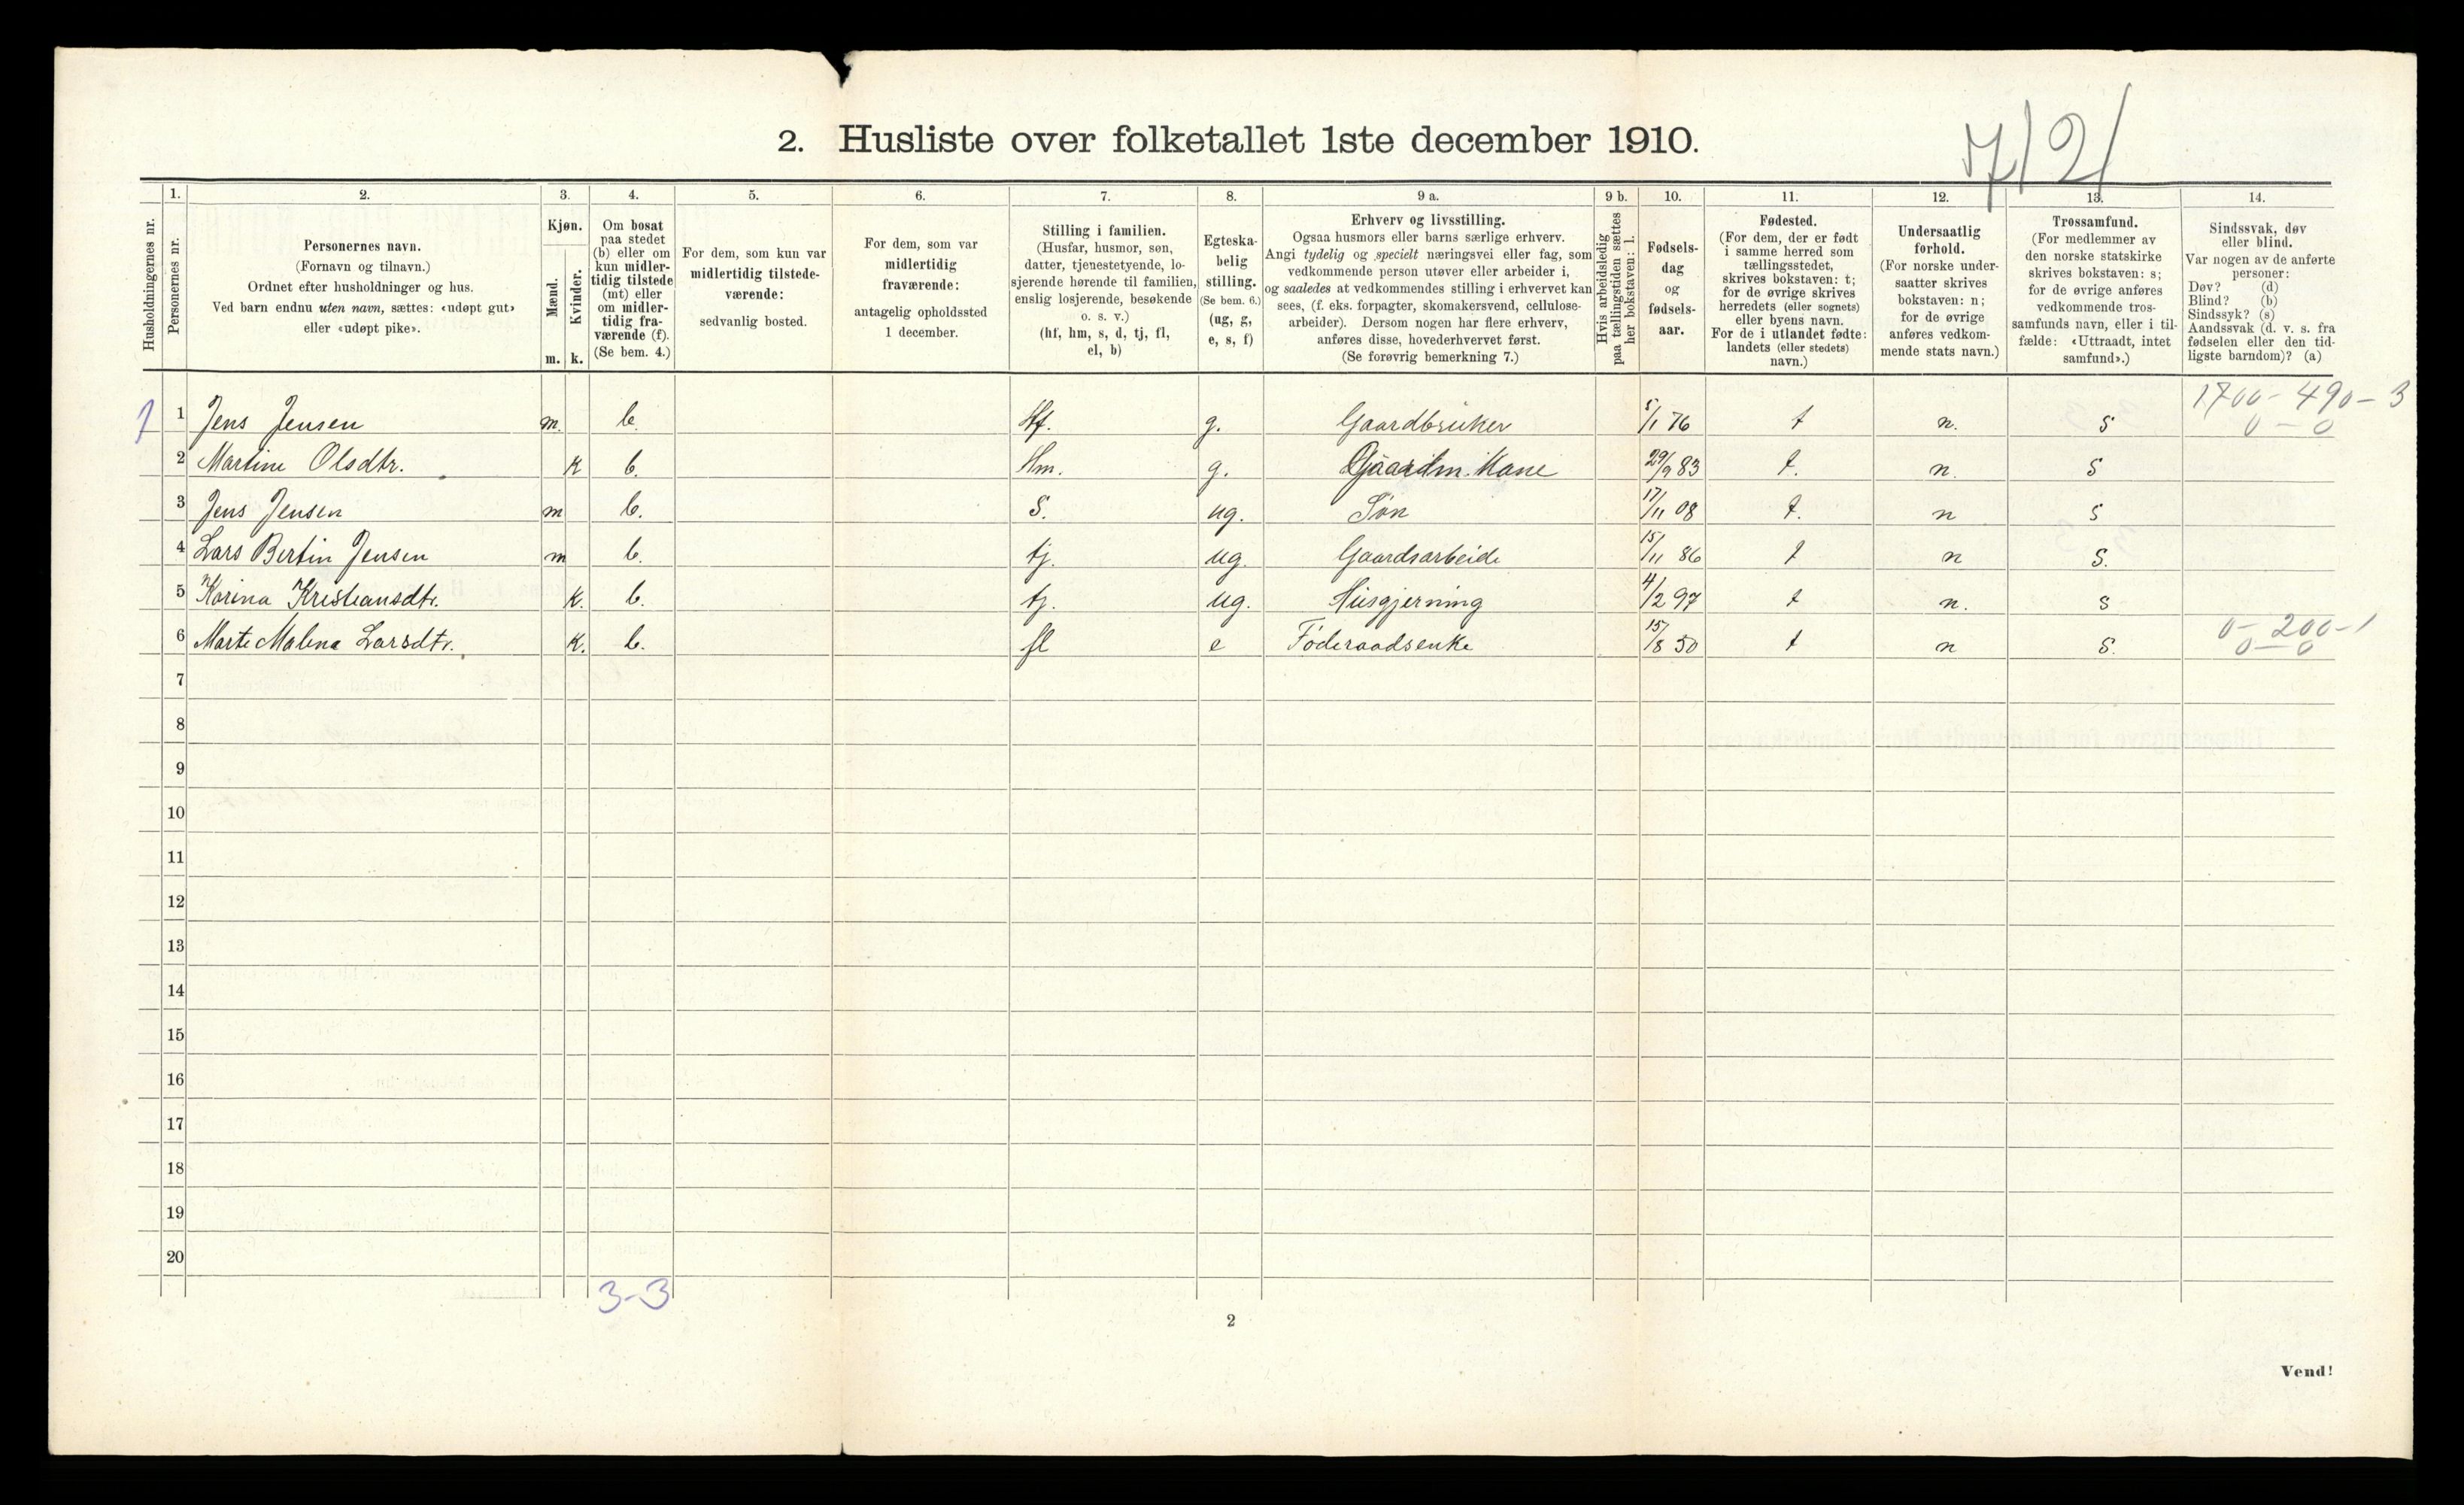 7/2/
2. Husliste over folketallet 1ste december 1910.
Husholdningernes nr.
1. Personernes nr.
2.
Personernes navn.
(Fornavn og tilnavn.)
Ordnet efter husholdninger og hus.
Ved barn endnu uten navn, sættes: «udøpt gut»
eller «udøpt pike».
3.
Kjøn.
Mænd. m.
Kvinder. k.
4.
Om bosat
paa stedet
(b) eller om
kun midler-
tidig tilstede
(mt) eller
om midler-
tidig fra-
værende (f).
(Se bem. 4.)
5.
For dem, som kun var
midlertidig tilstede-
værende:
sedvanlig bosted.
6.
For dem, som var
midlertidig
fraværende:
antagelig opholdssted
1 december.
7.
Stilling i familien.
(Husfar, husmor, søn,
datter, tjenestetyende, lo-
sjerende hørende til familien,
enslig losjerende, besøkende
o. s. v.)
(hf, hm, s, d, tj, fl,
el, b)
8.
Egteska-
belig
stilling.
(Se bem. 6.)
(ug, g,
e, s, f)
9 a.
Erhverv og livsstilling.
Ogsaa husmors eller barns særlige erhverv.
Angi tydelig og specielt næringsvei eller fag, som
vedkommende person utøver eller arbeider i,
og saaledes at vedkommendes stilling i erhvervet kan
sees, (f. eks. forpagter, skomakersvend, cellulose-
arbeider). Dersom nogen har flere erhverv,
anføres disse, hovederhvervet først.
(Se forøvrig bemerkning 7.)
9 b.
Hvis arbeidsledig
paa tællingstiden sættes
her bokstaven: l.
10.
Fødsels-
dag
og
fødsels-
aar.
11.
Fødested.
(For dem, der er født
i samme herred som
tællingsstedet,
skrives bokstaven: t;
for de øvrige skrives
herredets (eller sognets)
eller byens navn.
For de i utlandet fødte:
landets (eller stedets)
navn.)
12.
Undersaatlig
forhold.
(For norske under-
saatter skrives
bokstaven: n;
for de øvrige
anføres vedkom-
mende stats navn.)
13.
Trossamfund.
(For medlemmer av
den norske statskirke
skrives bokstaven: s;
for de øvrige anføres
vedkommende tros-
samfunds navn, eller i til-
fælde: «Uttraadt, intet
samfund».)
14.
Sindssvak, døv
eller blind.
Var nogen av de anførte
personer:
Døv? (d)
Blind? (b)
Sindssyk? (s)
Aandssvak (d. v. s. fra
fødselen eller den tid-
ligste barndom)? (a)
1 1 Jens Jensen m. b. Hf. g. Gaardbruker 5/1 76 t n. s 1700-490-3 0-0
2 Martine Olsdtr. K b. Hm. g. Gaardm. Kone 29/9 83 t. n. s
3 Jens Jensen m b. S. ug. Søn 17/11 08 t. n s
4 Lars Bertin Jensen m b. tj. ug. Gaardsarbeide 15/11 86 t n s.
5 Karina Kristiansdtr. K. b. tj. ug. Husgjerning 4/2 97 t n. s
6 Marte Malena Larsdtr. K. b. fl e Føderaadsenke 15/8 50 t n s. 0-200-1 0-0
7
8
9
10
11
12
13
14
15
16
17
18
19
20
3-3
2
Vend!